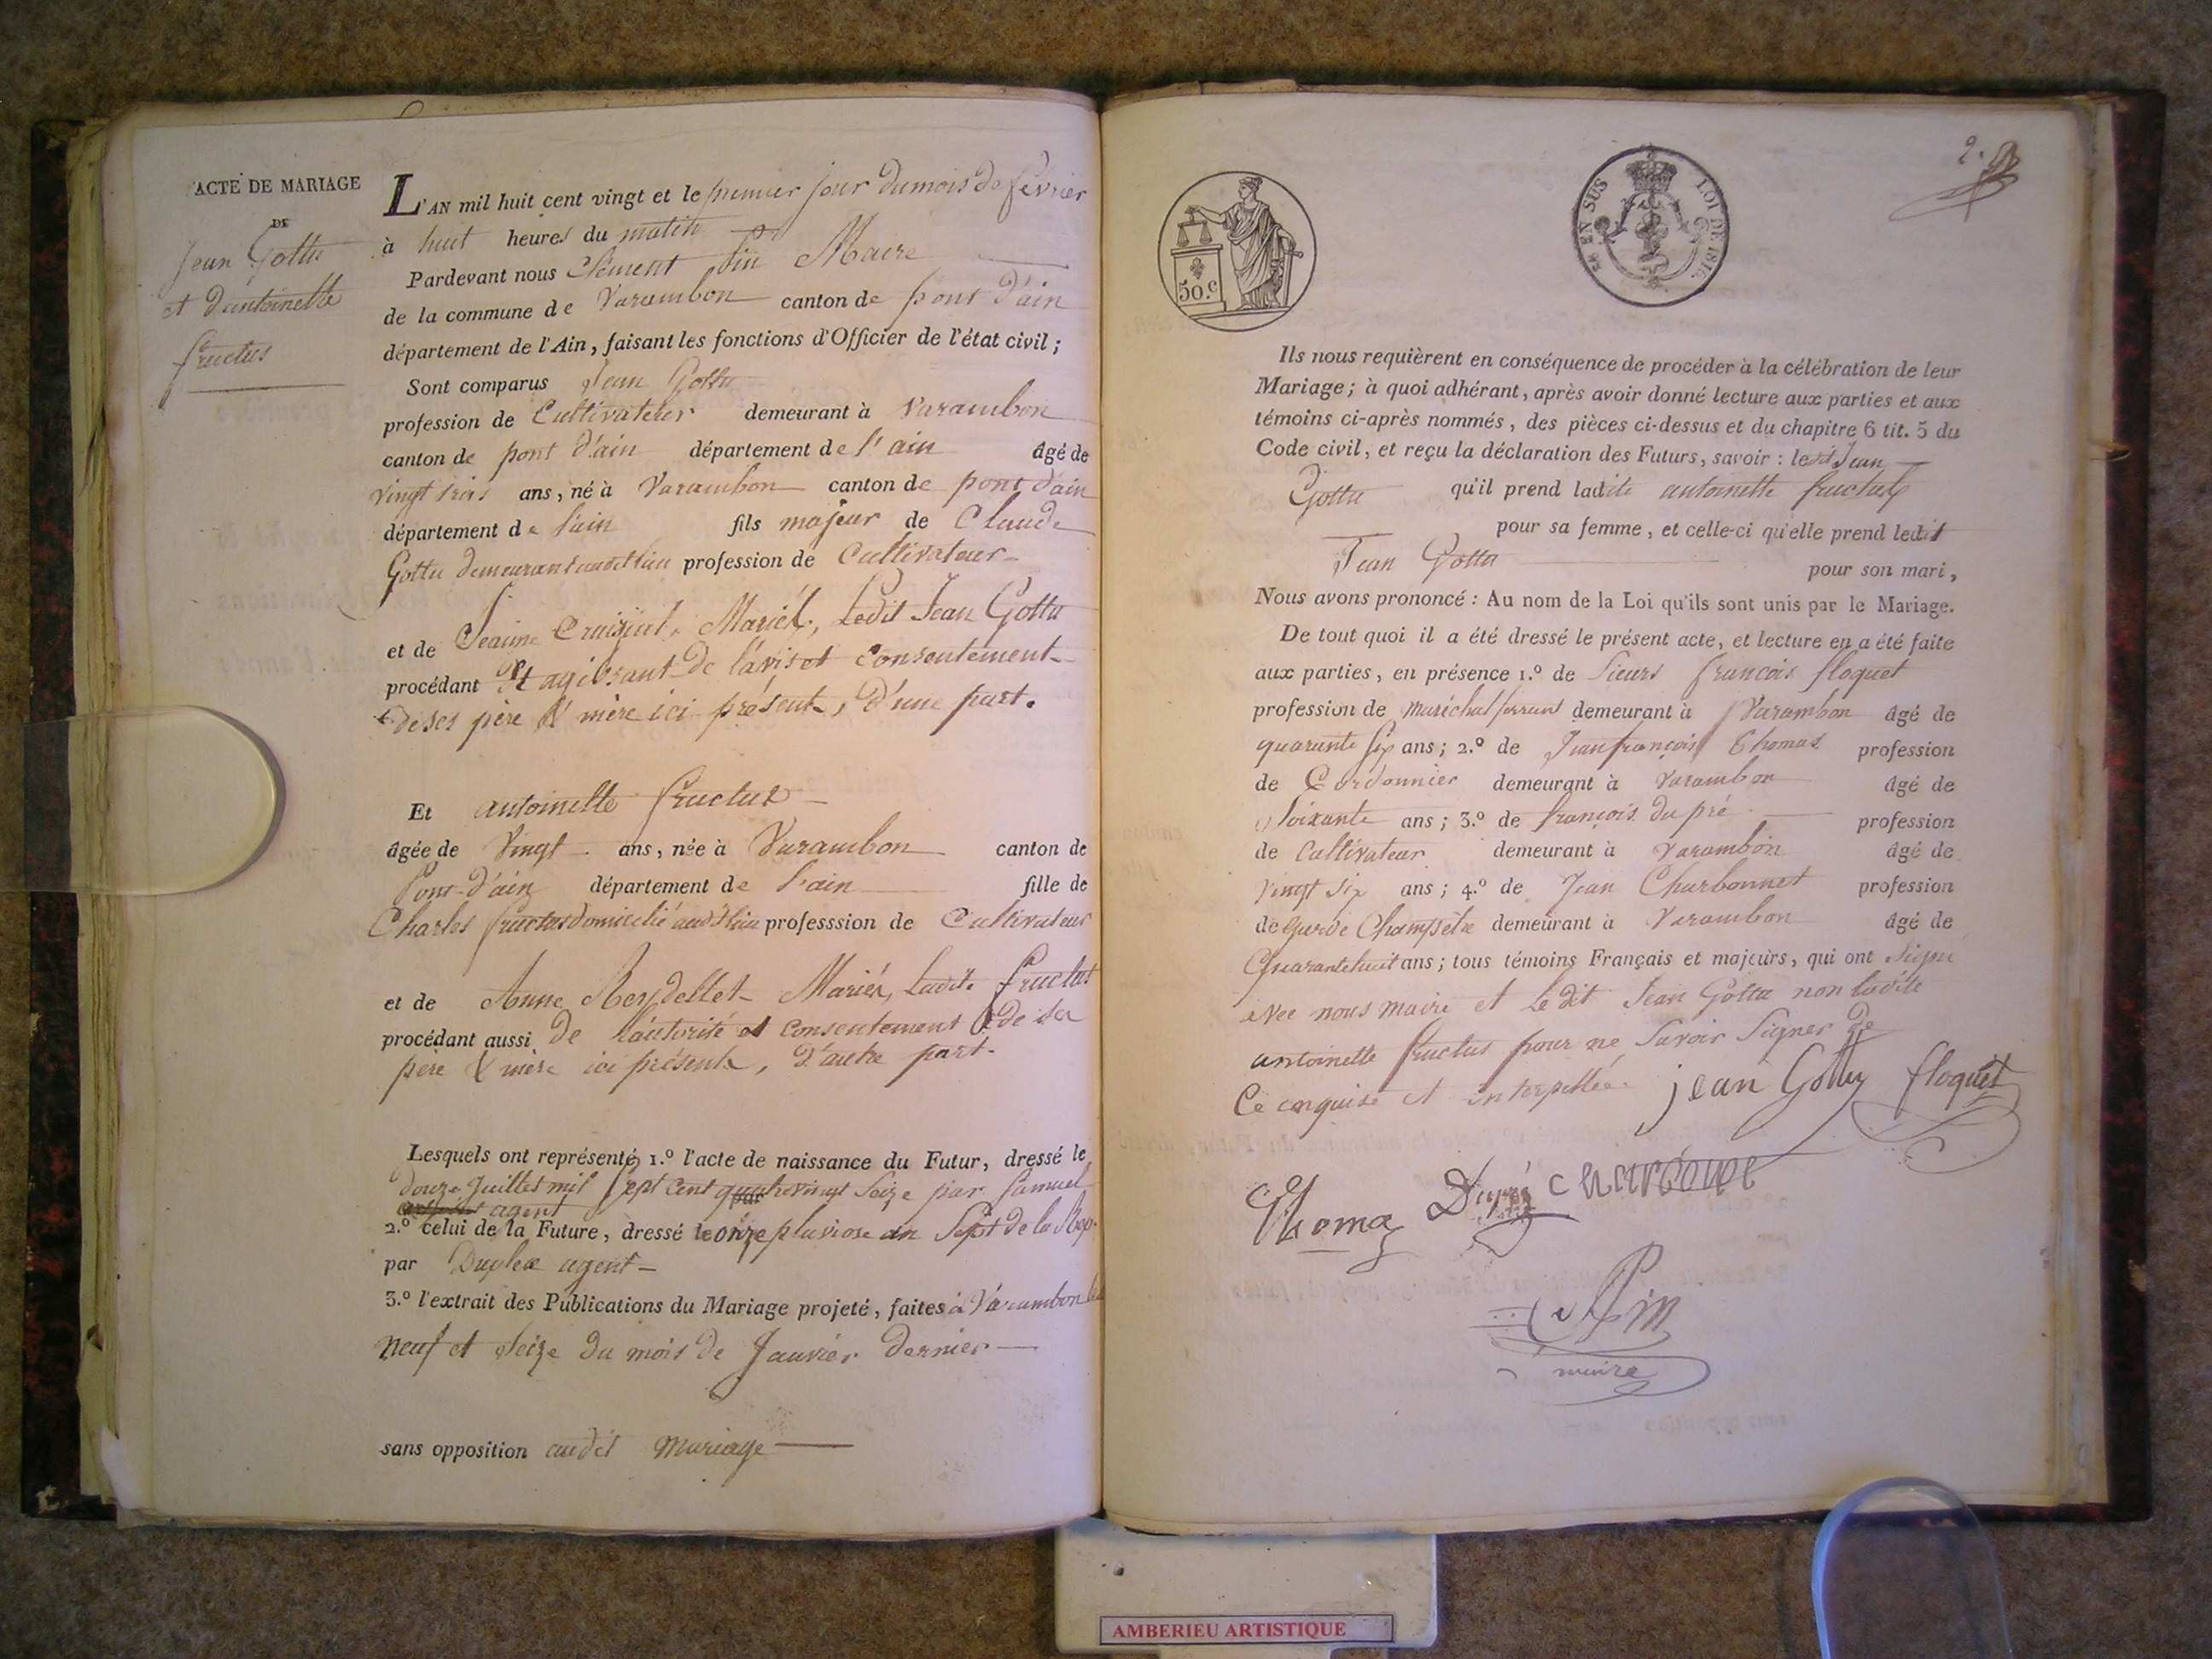 ACTE DE MARIAGE
DE
Jean Gottu
et d'antoinette
fructus
L'AN mil huit cent vingt et le premier jour du mois de février
à huit heures du matin
Pardevant nous Clément Pin Maire
de la commune de Varambon canton de pont d'ain
département de l'Ain, faisant les fonctions d'Officier de l'état civil;
Sont comparus Jean Gottu
profession de Cultivateur demeurant à Varambon
canton de pont d'ain département de l'ain âgé de
vingt trois ans, né à Varambon canton de pont d'ain
département de l'ain fils majeur de Claude
Gottu demeurant audit lieu profession de Cultivateur
et de Jeanne Mariés, Ledit Jean Gottu
procédant Et agissant de l'avis et consentement
de ses père & mère ici présent, d'une part.
Et antoinette fructus
âgée de Vingt ans, née à Varambon canton de
Pont-d'ain département de l'ain fille de
Charles fructus domicilié audit lieu professsion de Cultivateur
et de Anne Mariés, Ladite fructus
procédant aussi de l'autorité et consentement de sa
père & mère ici présents, d'autre part.
Lesquels ont représenté 1.º l'acte de naissance du Futur, dressé le
douze Juillet mil sept cent quatrevingt seize par Samuel
agent
2.º celui de la Future, dressé le onze pluviose an Sept de la Rep.
par Duplex agent
3.º l'extrait des Publications du Mariage projeté, faites à Varambon les
neuf et seize du mois de Janvier dernier
sans opposition audit mariage
50.c
EN SUS
LOI DE 1816.
2.
Ils nous requièrent en conséquence de procéder à la célébration de leur
Mariage; à quoi adhérant, après avoir donné lecture aux parties et aux
témoins ci-après nommés, des pièces ci-dessus et du chapitre 6 tit. 5 du
Code civil, et reçu la déclaration des Futurs, savoir: ledit Jean
Gottu qu'il prend ladite antoinette fructus
pour sa femme, et celle-ci qu'elle prend ledit
Jean Gottu pour son mari,
Nous avons prononcé: Au nom de la Loi qu'ils sont unis par le Mariage.
De tout quoi il a été dressé le présent acte, et lecture en a été faite
aux parties, en présence 1.º de Sieurs françois floquet
profession de maréchal ferrant demeurant à Varambon âgé de
quarante six ans; 2.º de Jean françois Thomas profession
de Cordonnier demeurant à Varambon âgé de
Soixante ans; 3.º de françois du pré profession
de Cultivateur demeurant à Varambon âgé de
vingt six ans; 4.º de Jean Charbonnet profession
de garde Champêtre demeurant à Varambon âgé de
Quarante huit ans; tous témoins Français et majeurs, qui ont signé
avec nous maire et Le dit Jean Gottu non ladite
antoinette fructus pour ne savoir signer de
Ce enquise et interpellée. jean Gottu floquet
Thoma Dupré
Pin
maire
AMBERIEU ARTISTIQUE